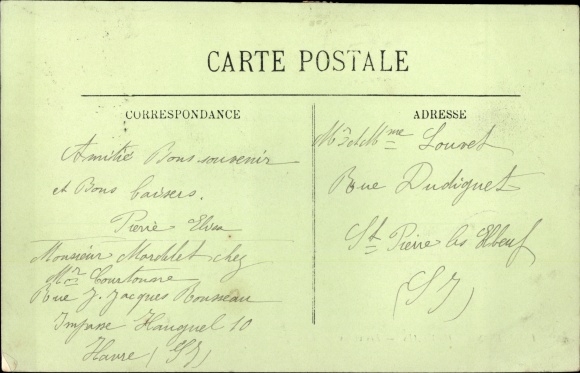 CARTE POSTALE
CORRESPONDANCE
Amitié Bons souvenir
et Bons baisers.
Pierre Elisa
Monsieur Mordelet chez
Mr Courtonne
Rue J. Jacques Rousseau
Impasse Hauguel 10
Havre (SI)
ADRESSE
Mr et Mme Louvet
Rue Dudiquet
St Pierre les Elbeuf
(SI)